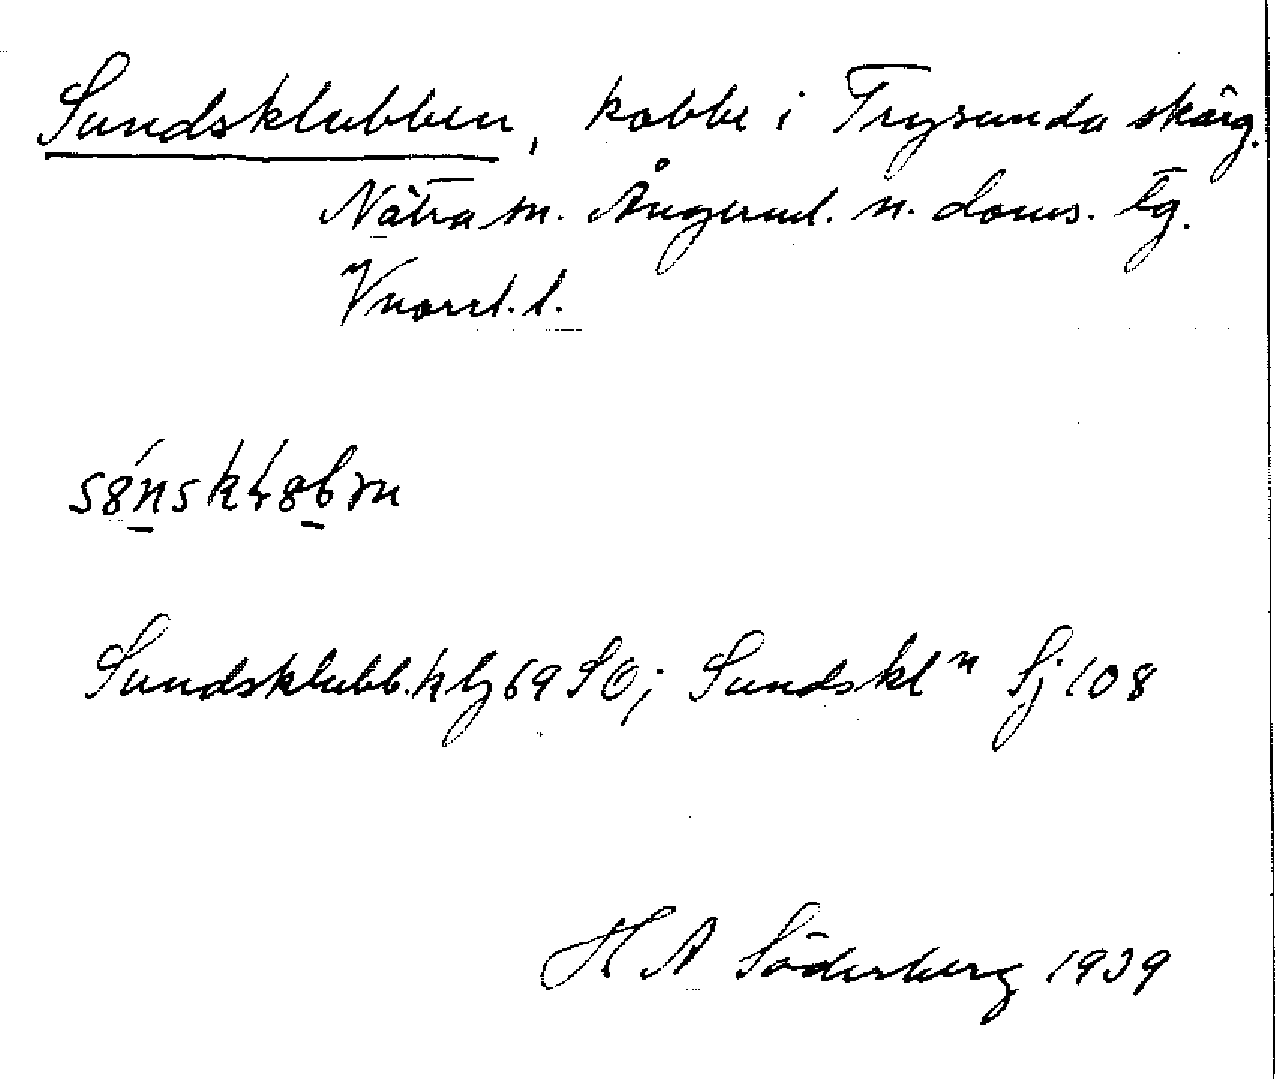 Sundsklubben, kobbe i Trysunda skärg.
Nätra sn. Ångerml. n. doms. tg.
Vnorrl. l.
Sundsklubb. hlz 69 SO; Sundsklⁿ Sj 108
H A Söderberg 1939